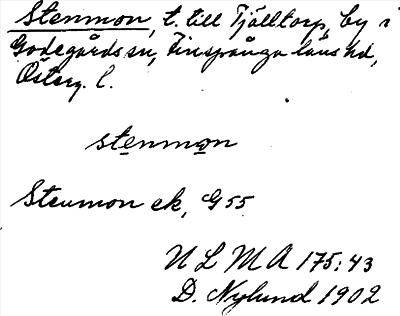 Stenmon, t. till Tjälltorp, by i
Godegårds sn, Finspånga läns hd,
Österg. l.
stenmon
Stenmon ek, G 55
U L M A 175:43
D. Nylund 1902